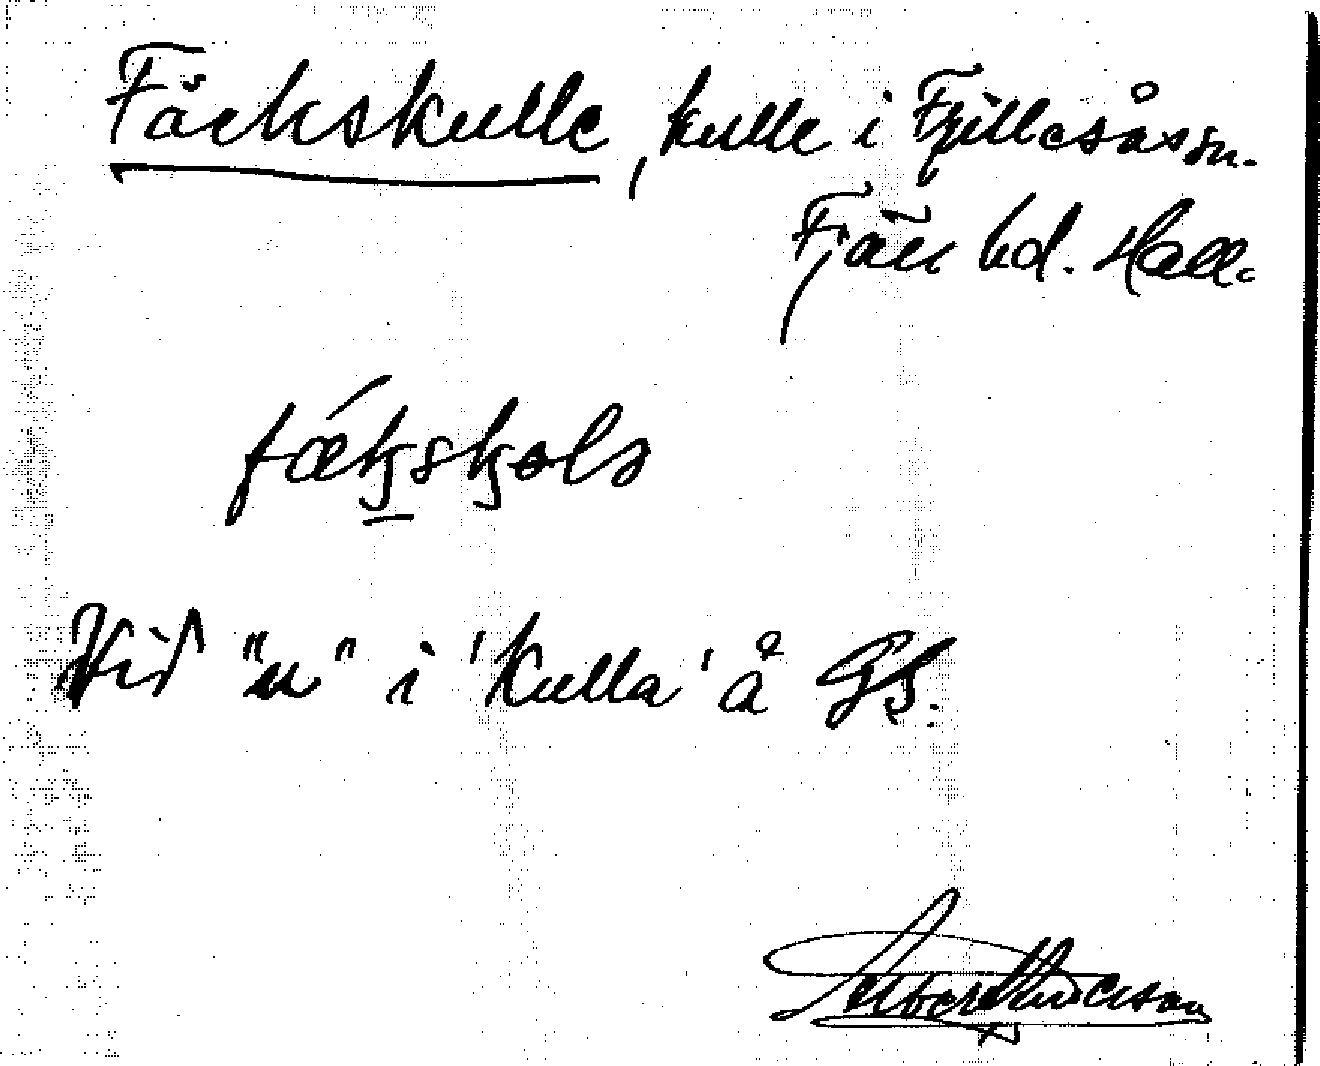 Fäckskulle, kulle i Fjällesåssn.
Fjäre hd. Hall.
Vid "u" i 'kulla' å GS.
Albert Andersson